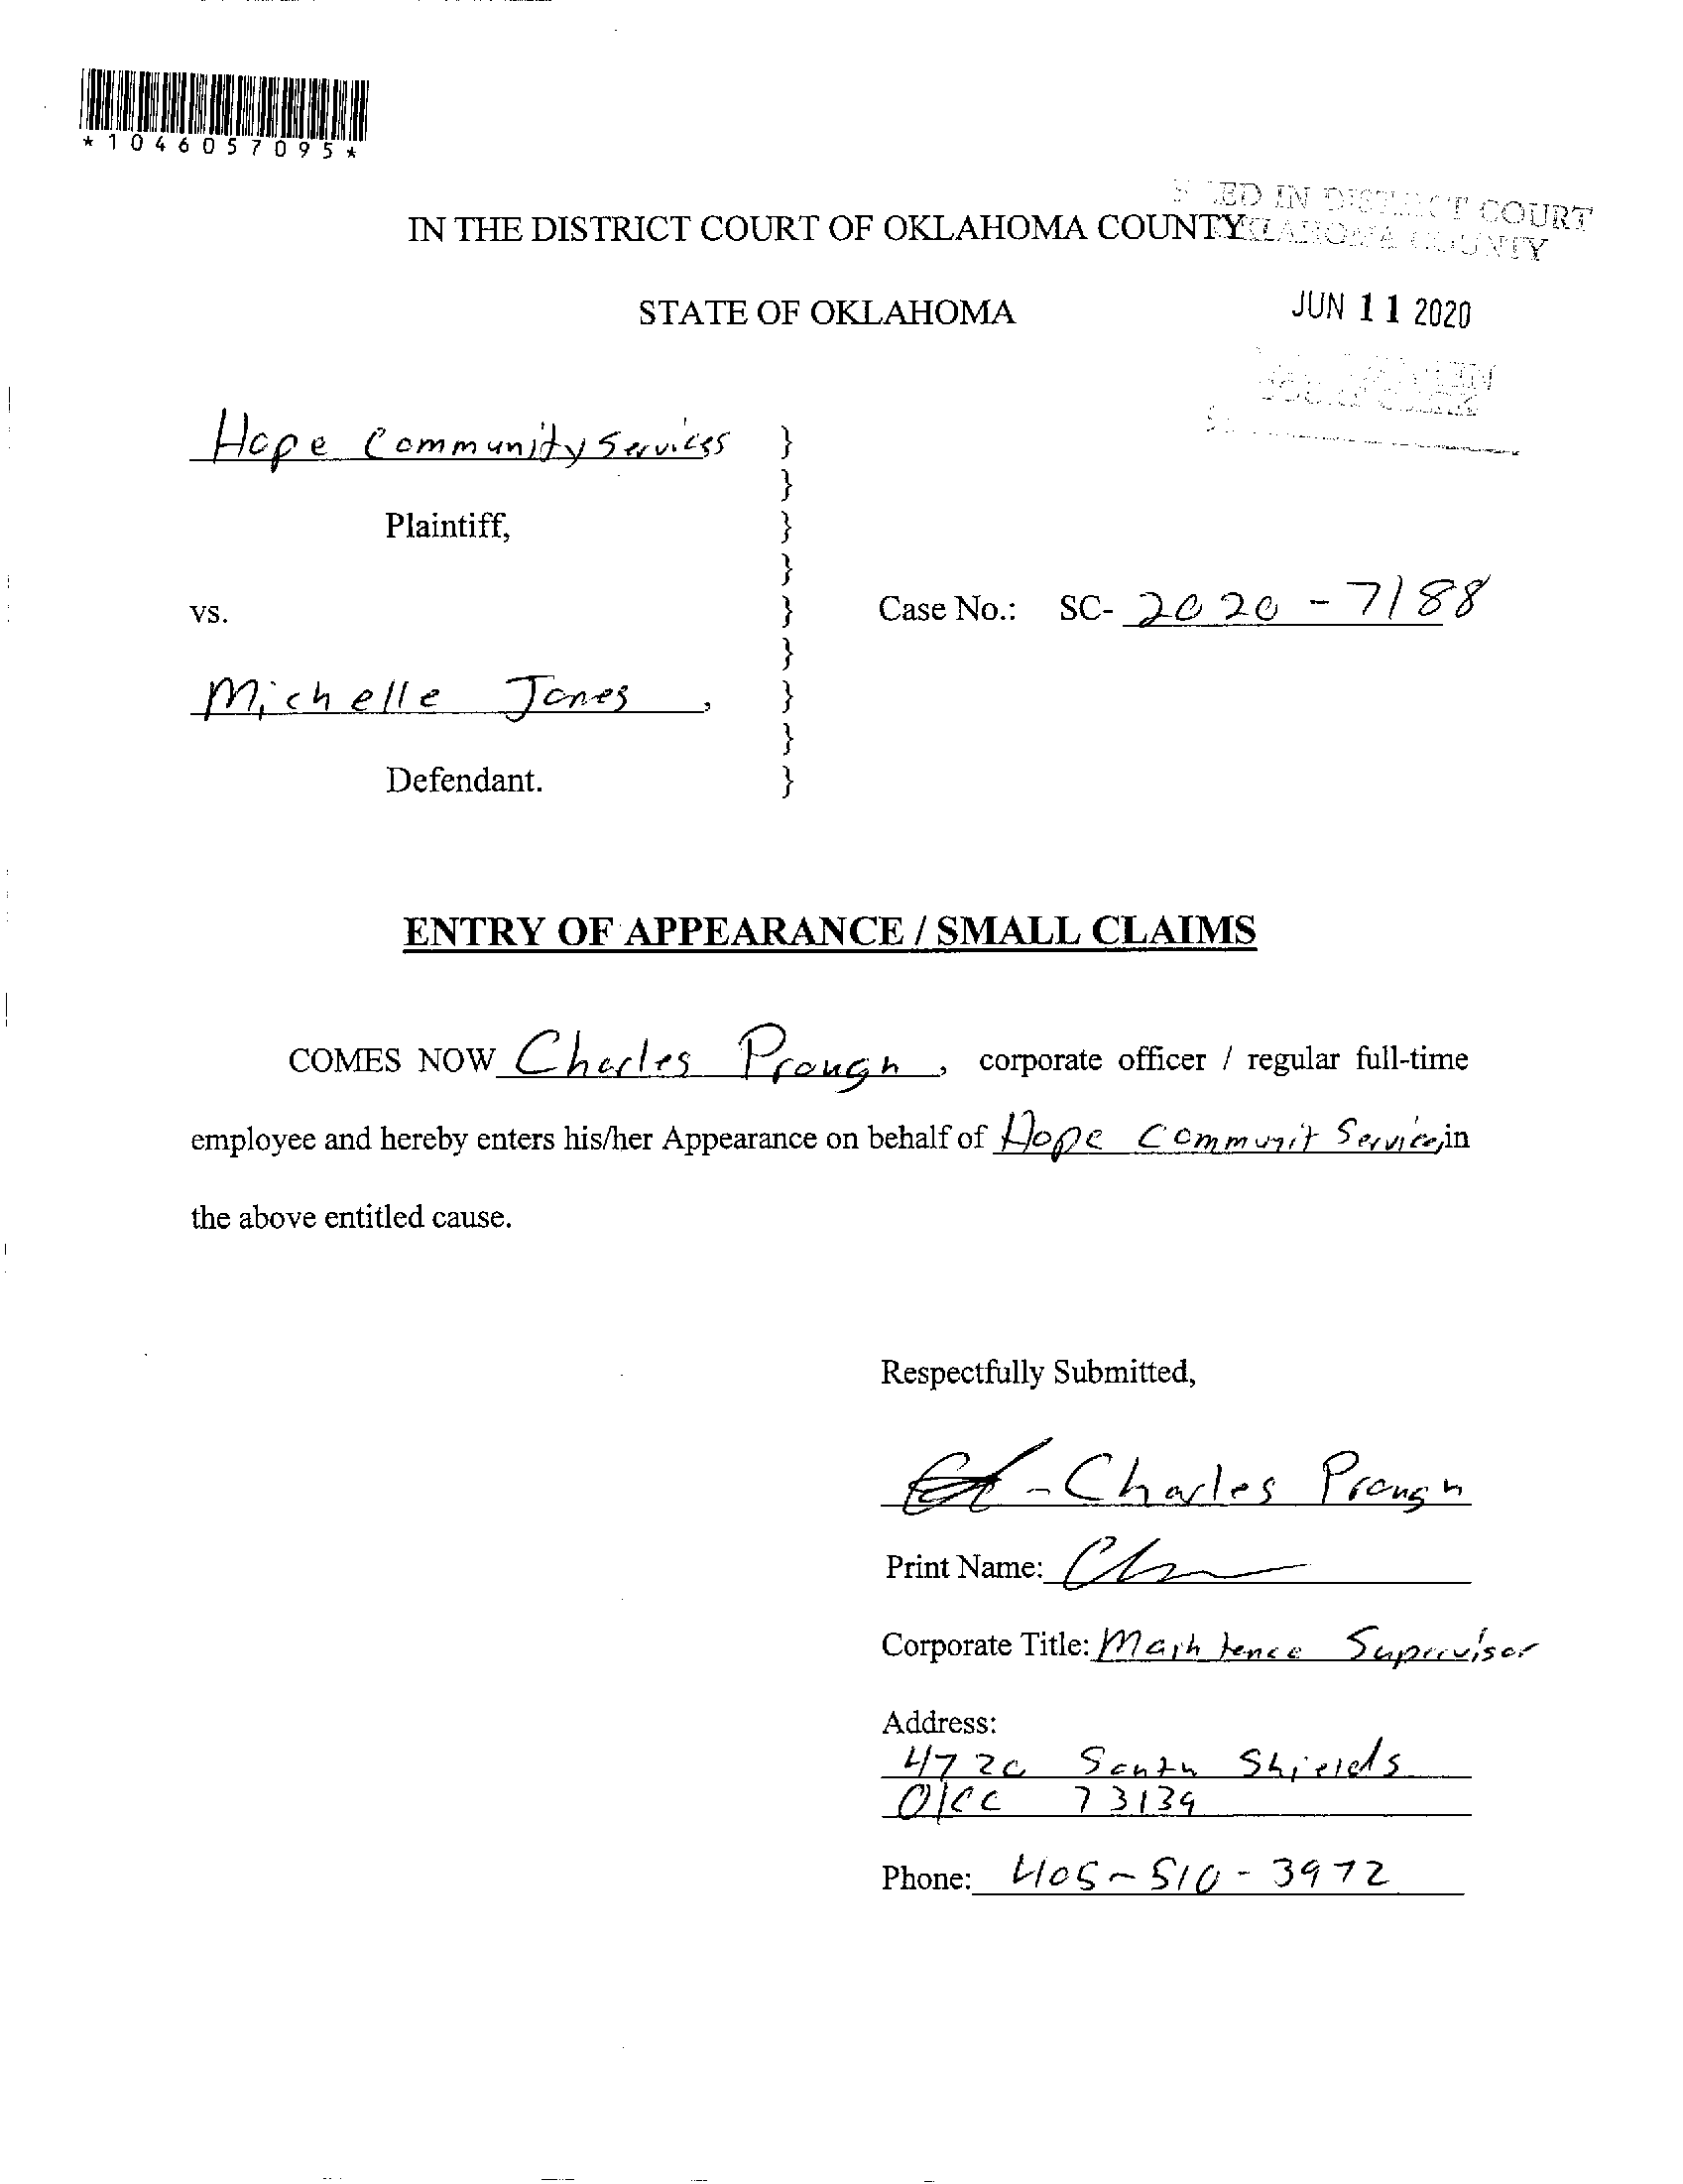 *1046057095*
IN THE DISTRICT COURT OF OKLAHOMA COUNTY
IN DISTRICT COURT
OKLAHOMA COUNTY
STATE OF OKLAHOMA
JUN 11 2020
COURT CLERK
Hope Community Services }
}
Plaintiff, }
}
vs. } Case No.: SC- 2020 - 7188
}
Michelle Jones , }
}
Defendant. }
ENTRY OF APPEARANCE / SMALL CLAIMS
COMES NOW Charles Prough , corporate officer / regular full-time
employee and hereby enters his/her Appearance on behalf of Hope Communit Service, in
the above entitled cause.
Respectfully Submitted,
- Charles Prough
Print Name:
Corporate Title: Maintence Supervisor
Address:
4720 South Shields
OKC 73139
Phone: 405-510-3972